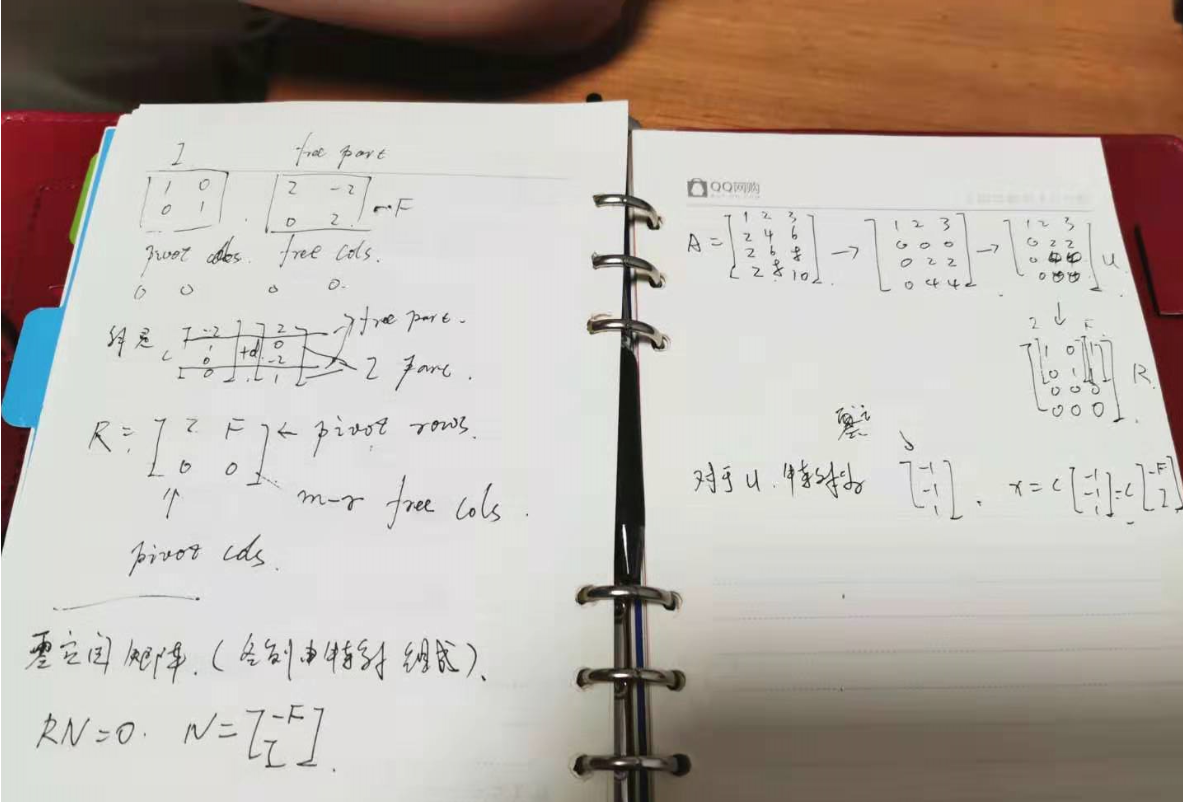 I free part
[1 0 [2 -2
0 1] . 0 2] ~F
pivot cols. free cols.
0 0 0 0.
c [-2 1 0 0] + d [2 0 -2 1] free part.
I part.
R = [I F ← pivot rows.
0 0]
↑ m-r free cols.
pivot cols.
零空间矩阵. (各列由特解组成).
RN=0. N=[-F
I].
QQ网购
A = [1 2 3 → [1 2 3 → [1 2 3
2 4 6 0 0 0 0 2 2
2 6 8 0 2 2 0 0 0
2 8 10] 0 4 4]. 0 0 0] U.
↓
I F
[1 0 1
0 1 1 R.
0 0 0
0 0 0].
对于U.特解为 [-1 -1 1]. x=c[-1 -1 1]=c[-F I]